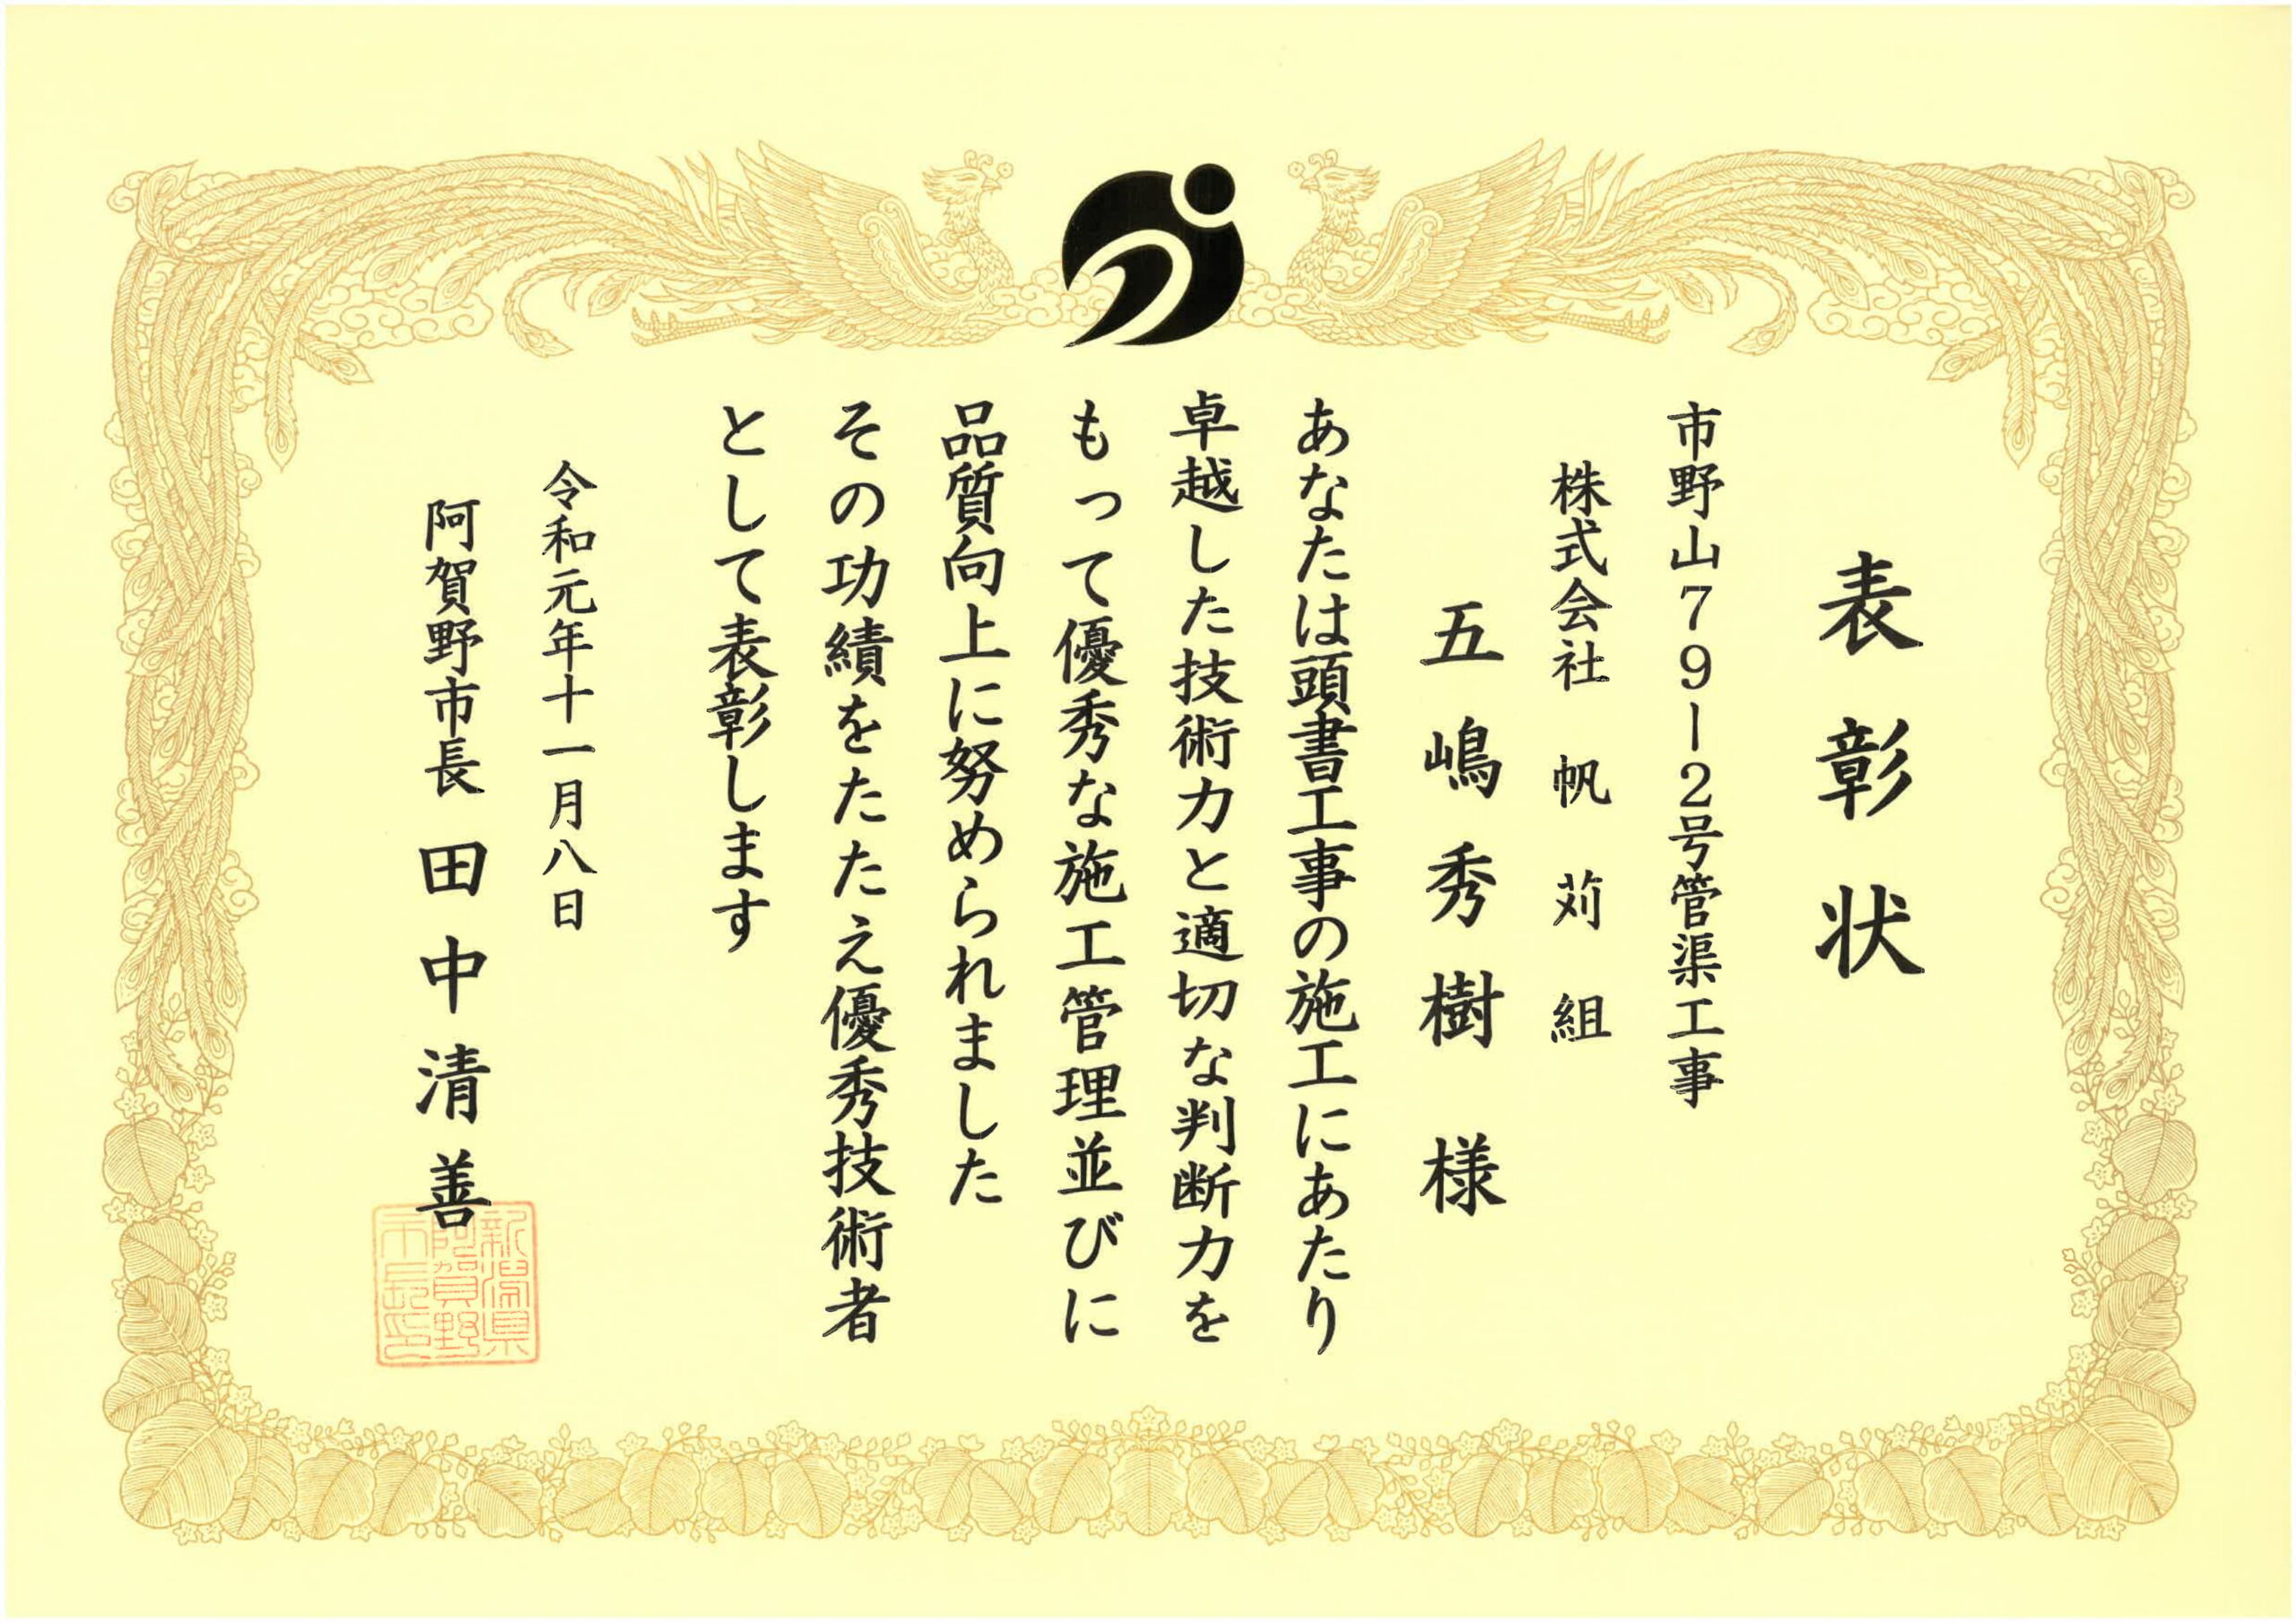 表彰状
市野山79-2号管渠工事
株式会社 帆苅組
五嶋秀樹 様
あなたは頭書工事の施工にあたり
卓越した技術力と適切な判断力を
もって優秀な施工管理並びに
品質向上に努められました
その功績をたたえ優秀技術者
として表彰します
令和元年十一月八日
阿賀野市長 田中清善
新潟県
阿賀野
市長印